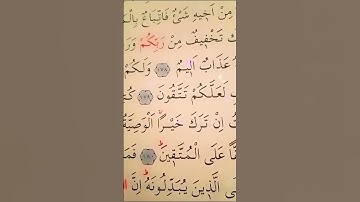 مِنْ اَخ۪يهِ شَيْءٌ فَاتِّبَاعٌ بِالْمَ
كَ تَخْف۪يفٌ مِنْ رَبِّكُمْ وَرَ
عَذَابٌ اَل۪يمٌ ﴿١٧٨﴾ وَلَكُمْ
لَعَلَّكُمْ تَتَّقُونَ ﴿١٧٩﴾ كُتِ
تُ اِنْ تَرَكَ خَيْرًاۚ اَلْوَصِيَّةُ
قًّا عَلَى الْمُتَّق۪ينَۜ ﴿١٨٠﴾ فَمَ
ى الَّذ۪ينَ يُبَدِّلُونَهُۜ اِنَّ